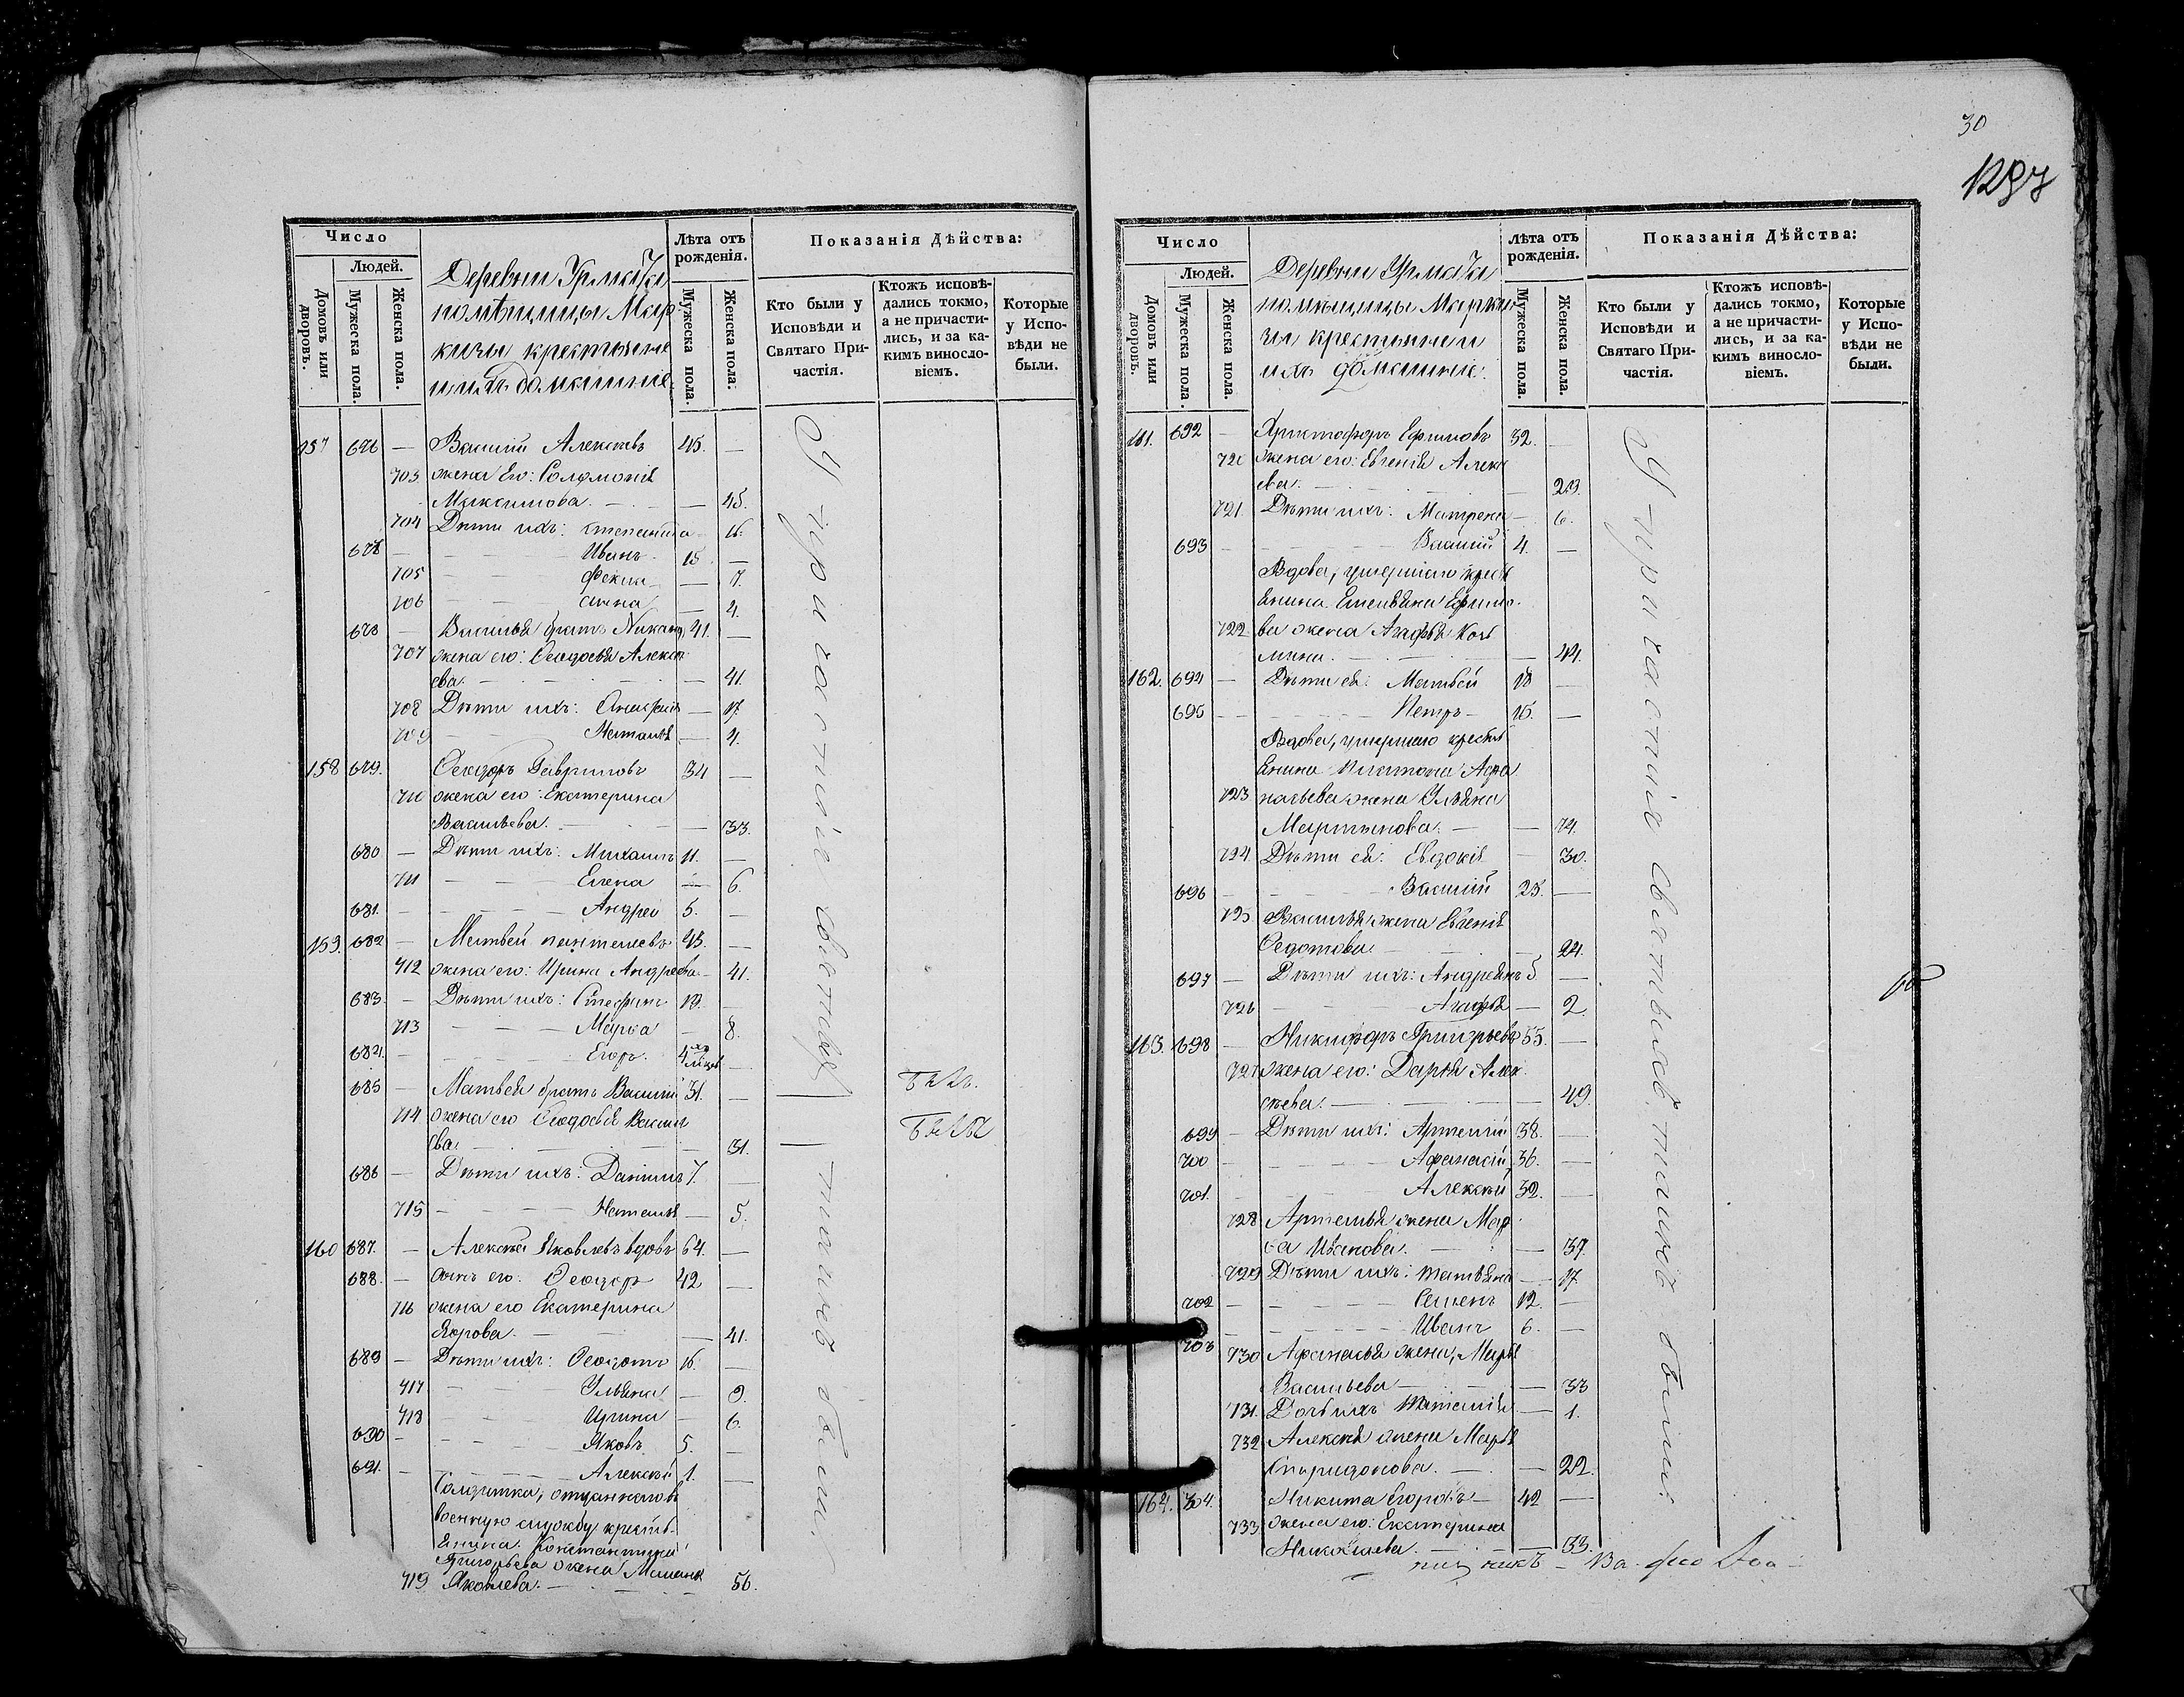 Число
Людей.
Домовъ или дворовъ.
Мужеска пола.
Женска пола.
Деревни
помѣщицы Мар
кизы крестьяне
и ихъ домашніе.
Лѣта отъ рожденія.
Мужеска пола.
Женска пола.
Показанія Дѣйства:
Кто были у Исповѣди и Святаго Причастія.
Ктожъ исповѣдались токмо, а не причастились, и за какимъ винословіемъ.
Которые у Исповѣди не были.
157 676 — Василій Алексѣевъ 45. —
703 жена Его: Соломонія
Максимова. — — 45.
704 Дѣти ихъ: 16.
— Иванъ 15 —
705 — Фекла — 7.
706 — Анна — 4.
678 — Василья братъ 41. —
707 жена его: Ѳеодосья Алексѣ
ева. — 41.
708 Дѣти ихъ: — 17.
709 — Наталья — 4.
158 679. Ѳеодоръ Гавриловъ 34 —
710 жена его: Екатерина
Васильева. — — 33.
680 — Дѣти ихъ: Михаилъ 11. —
711 — Елена — 6.
681. — Андрей 5. —
159. 682 — Матвей Пантелеевъ 43. —
712 жена его: Ирина Андреева — 41.
683. — Дѣти ихъ: Стефанъ 19. —
713 — Марѳа — 8.
684. — Егоръ. 4
685 — Матвея братъ Василій 31. — Былъ.
714 жена его Ѳеодосья Василь
ева. — 31. Была
686 — Дѣти ихъ: Даніилъ 7. —
715 — Наталья — 5.
160 687. — Алексѣй Яковлевъ вдовъ 64. —
688. — сынъ его: Ѳеодоръ 42 —
716 жена его Екатерина
— 41.
689 — Дѣти ихъ: Ѳеодотъ 16. —
717 — Ульяна — 9.
718 — Ирина — 6.
690 — Яковъ 5. —
691. — Алексѣй 1. —
Солдатка, отданнаго въ
военную службу кресть-
янина Константина
Григорьева жена
719 Яковлева. — 56.
У причастія святыхъ таинъ были.
30
1297
Число
Людей.
Домовъ или дворовъ.
Мужеска пола.
Женска пола.
Деревни
помѣщицы Марки
зы крестьяне и
ихъ домашніе.
Лѣта отъ рожденія.
Мужеска пола.
Женска пола.
Показанія Дѣйства:
Кто были у Исповѣди и Святаго Причастія.
Ктожъ исповѣдались токмо, а не причастились, и за какимъ винословіемъ.
Которые у Исповѣди не были.
161. 692 — Христофоръ Ефимовъ 32. —
720 жена его: Евгенія Алексѣ
ева. — 29.
721. Дѣти ихъ: Матрена — 6.
693 — Василій 4. —
Вдова, умершаго кресть
янина Емельяна Ефимо
722 ва жена Агафья Козь
мина. — 44.
162. 694 — Дѣти ея: Матвей 18 —
695 — Петръ 15. —
Вдова, умершаго кресть
янина Платона Афа
723 насьева жена Ульяна
Мартынова. — 74.
724 Дѣти ея: Евдокія — 30.
696 — Василій 25. —
725 Василья жена Евгенія
Ѳедотова. — 24.
697 — Дѣти ихъ: Андреянъ 5 —
726 — Агафья — 2.
163. 698 — Никифоръ Григорьевъ 55. —
727 жена его: Дарья Алек
сѣева. — 49.
699 — Дѣти ихъ: Артемій 38. —
700 — Афанасій 36. —
701. — Алексѣй 32. —
728 Артемья жена Мар
ѳа Иванова. — 37.
729 Дѣти ихъ: Татьяна — 17
702 — Семенъ 12. —
703 — Иванъ 6. —
730 Афанасья жена, Марья
Васильева — 33
731. Дочь ихъ Наталія — 1.
732 Алексѣя жена Марья
Спиридонова. — 22.
164. 704. Никита Егоровъ — 42 —
733 жена его: Екатерина
Николаева. — 33.
У причастія святыхъ таинъ были.